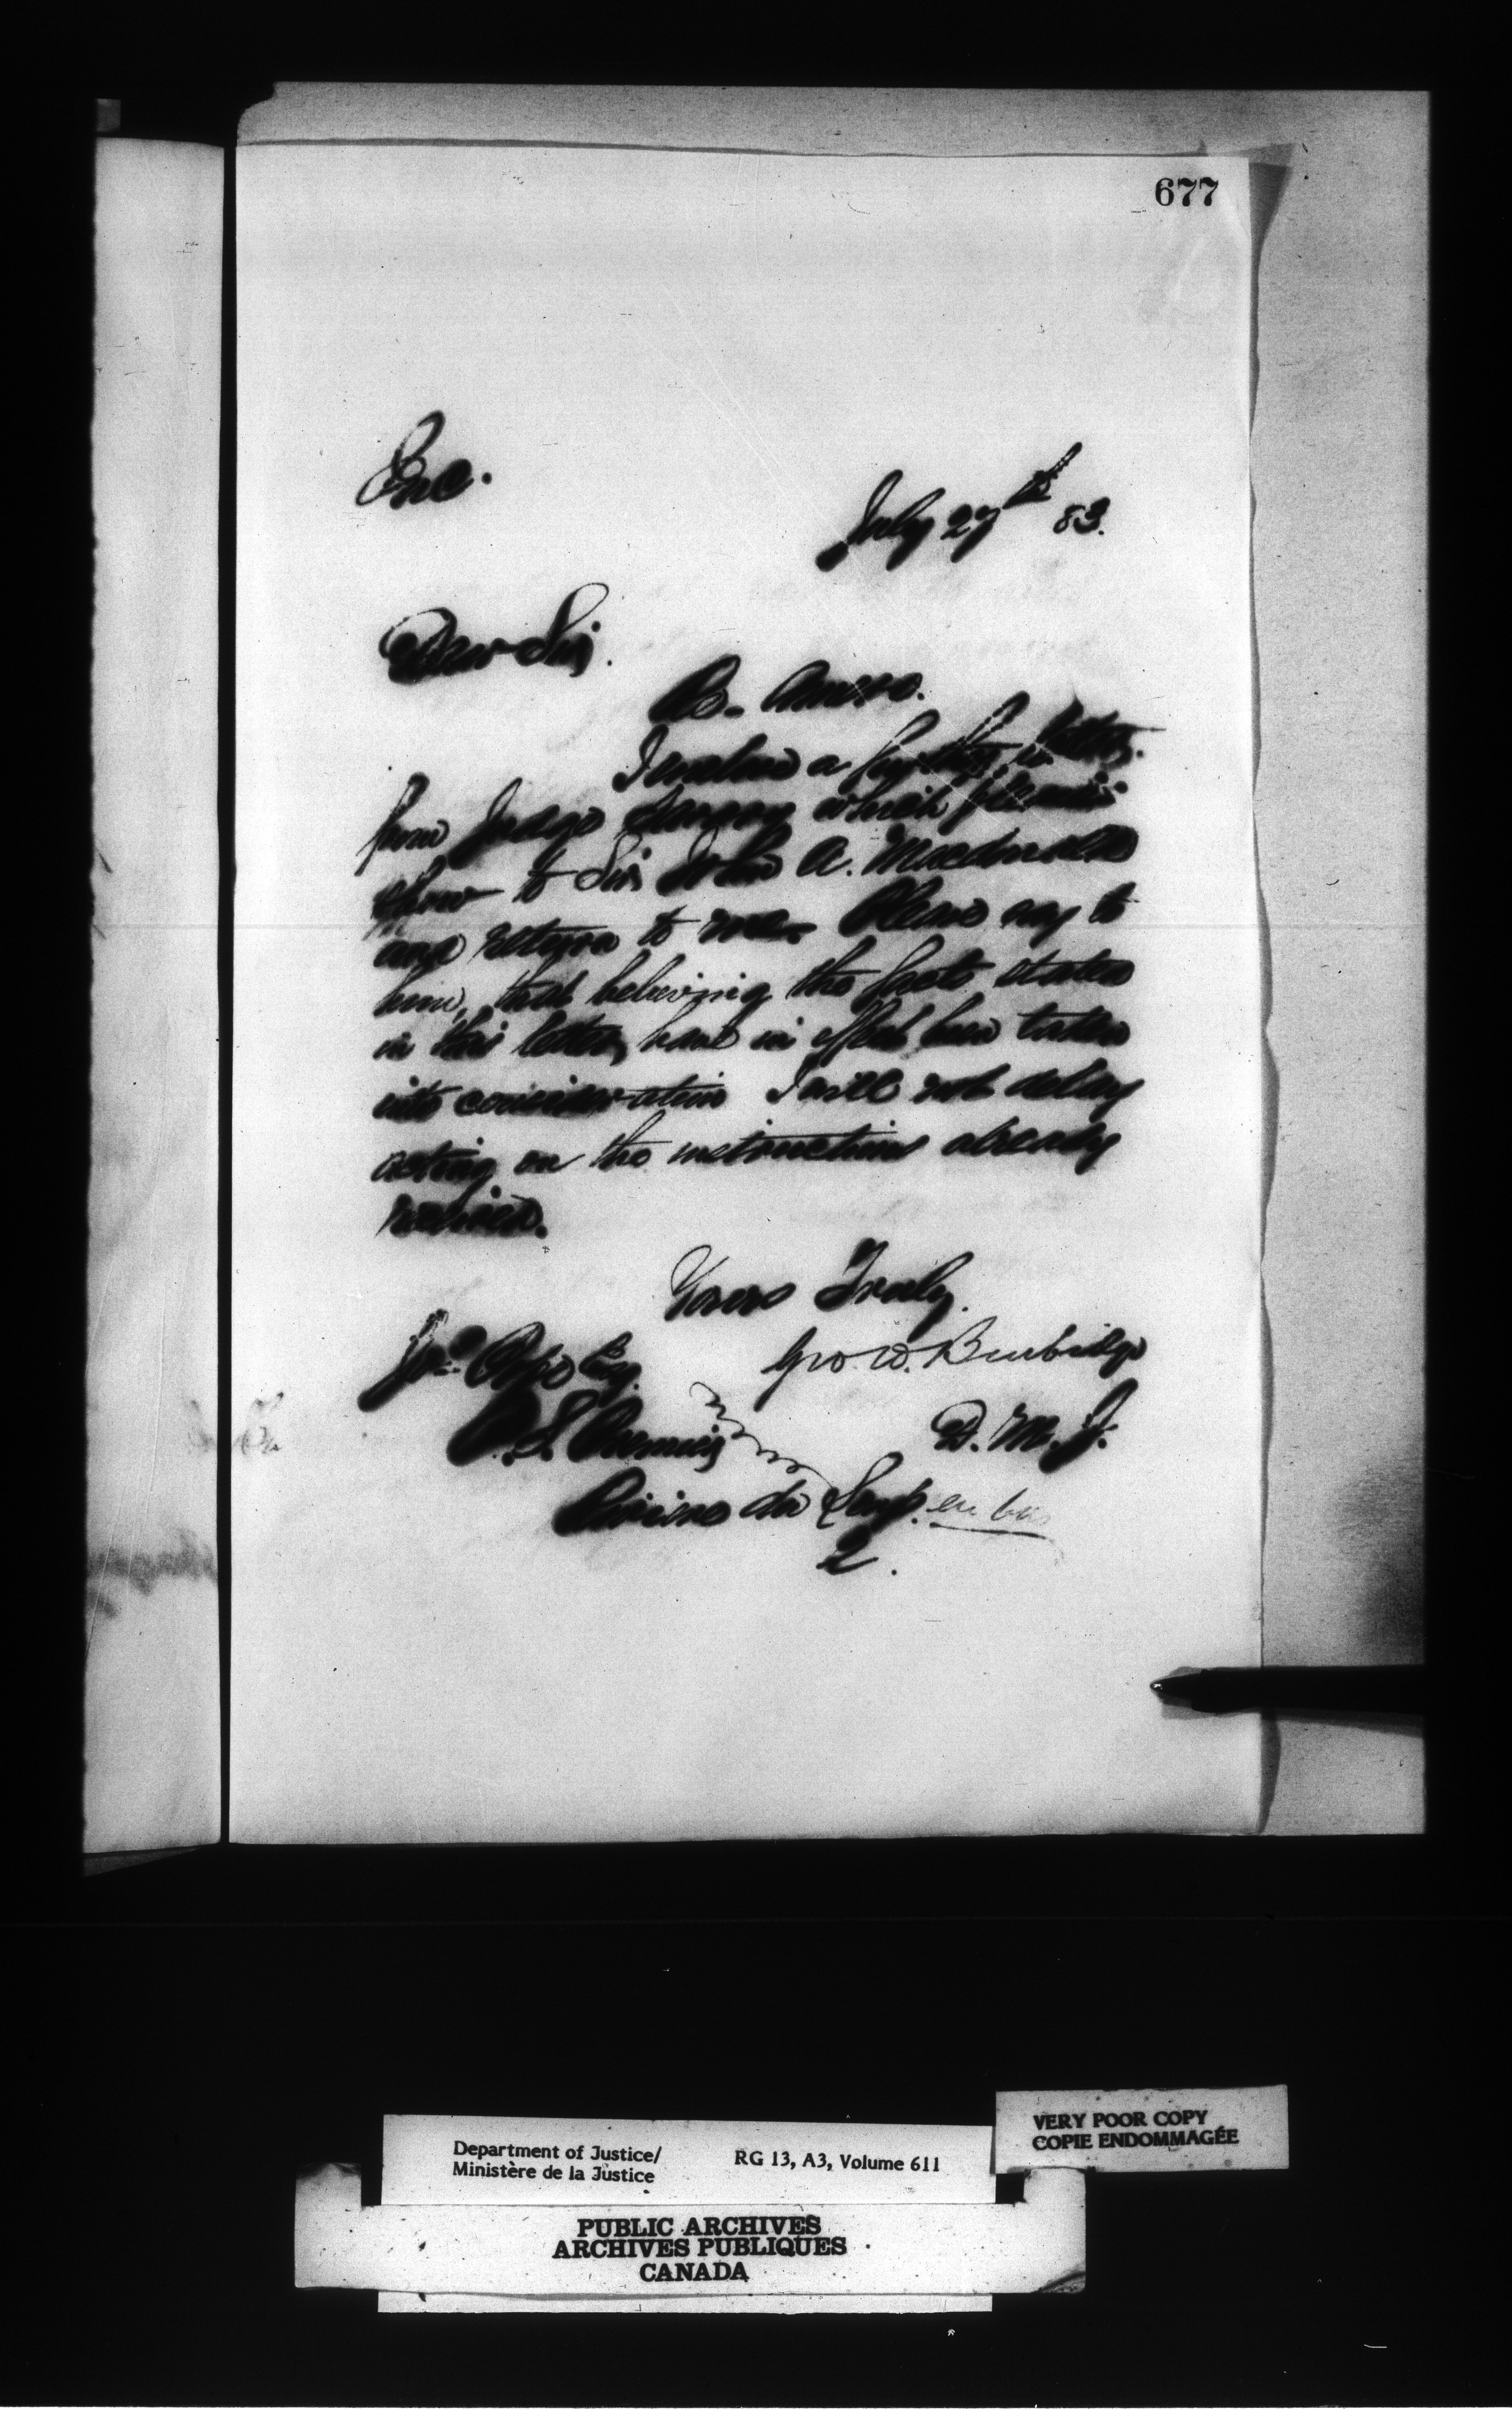 677
Enc.
July 27th 83.
Dear Sir.
B.
I enclose a further letter
from Judge which please
show to Sir John A. Macdonald
and return to me. Please say to
him, that believing the facts stated
in this letter, have in effect been taken
into consideration I will not delay
acting on the instructions already
received.
Yours Truly
Geo. W. Burbidge
D. M. J.
Jos. Pope Esq.
P.S.
Rivière du Loup en bas
2.
Department of Justice/
Ministère de la Justice
RG 13, A3, Volume 611
VERY POOR COPY
COPIE ENDOMMAGÉE
PUBLIC ARCHIVES
ARCHIVES PUBLIQUES
CANADA